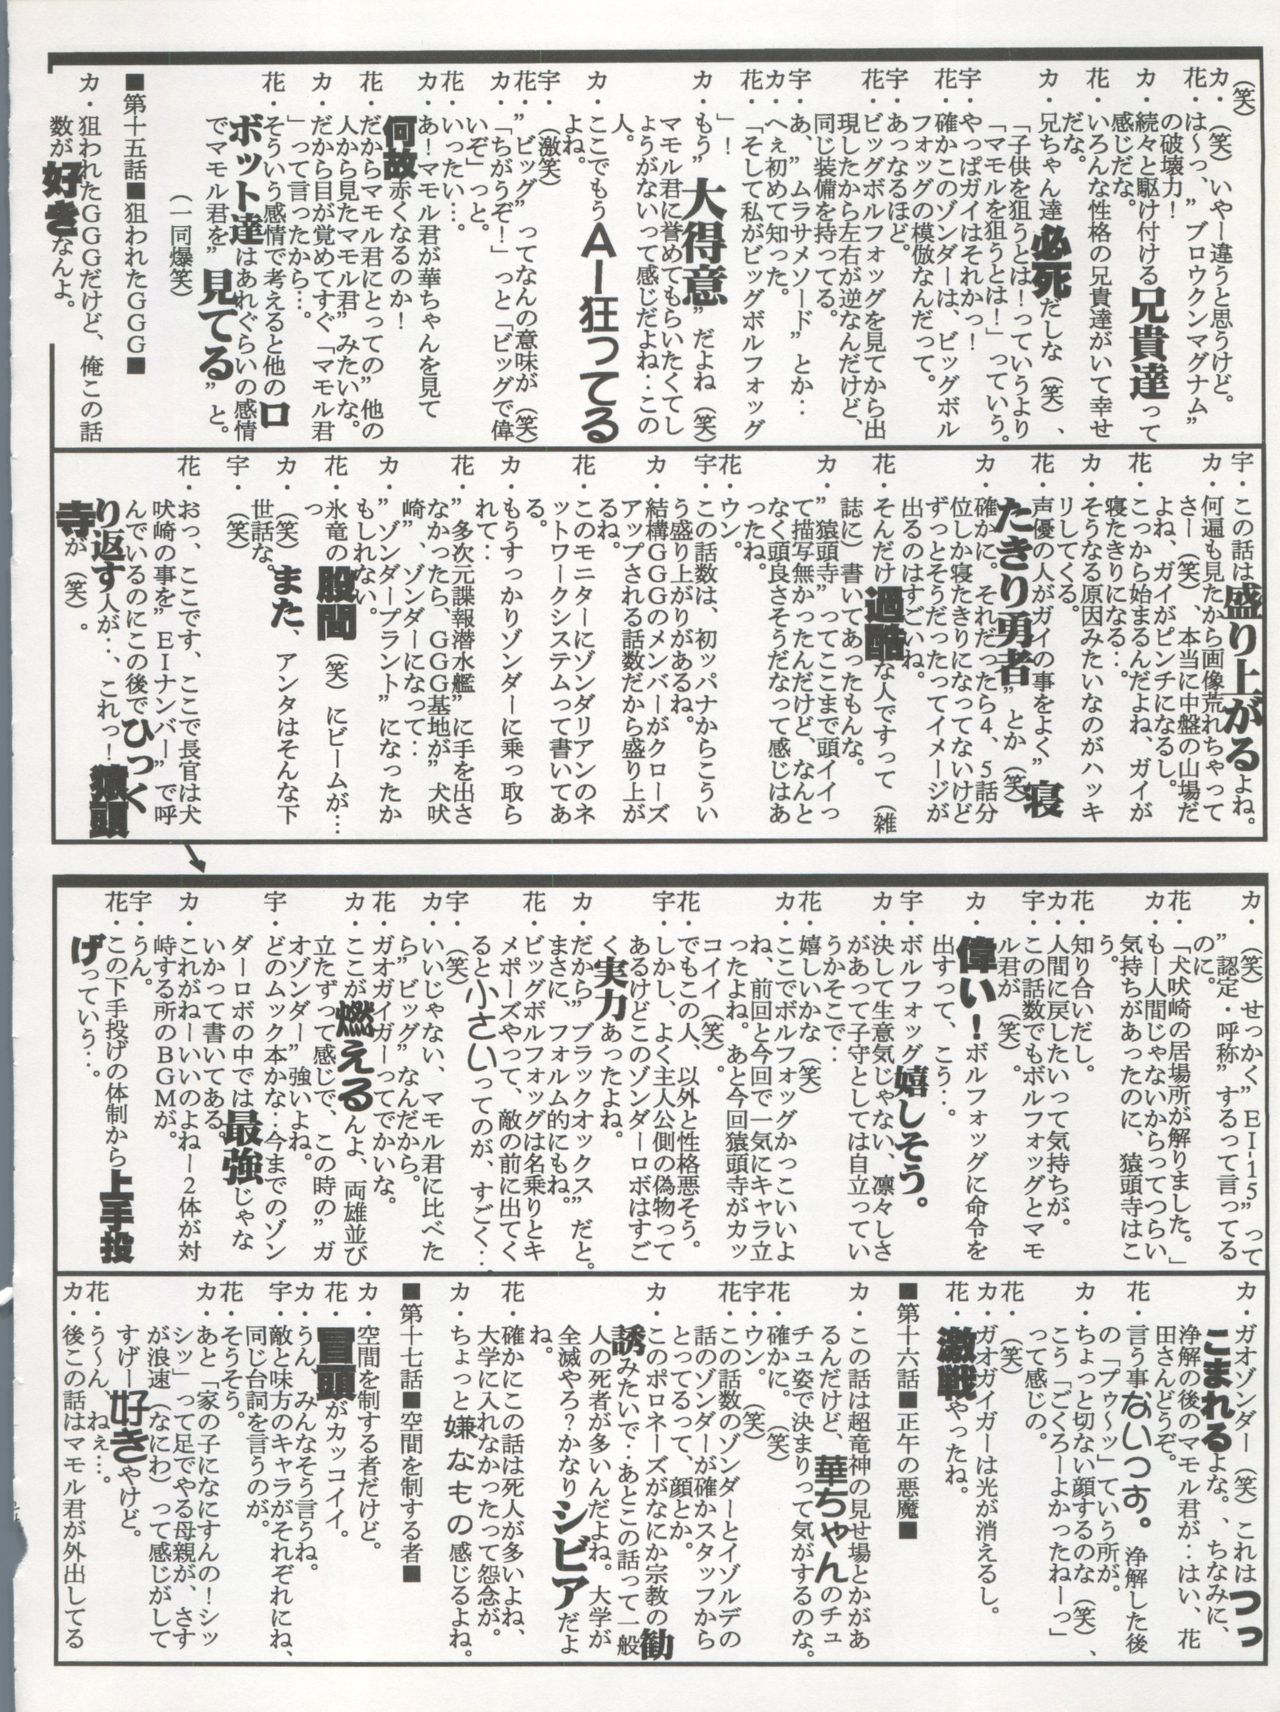 (笑)
カ・(笑)いやー違うと思うけど。
花・は~っ、”ブロウクンマグナム”
の破壊力!
カ・続々と駆け付ける兄貴達って
感じだな。
花・いろんな性格の兄貴達がいて幸せ
だな。
カ・兄ちゃん達必死だしな(笑)、
「子供を狙うとは!っていうより
「マモルを狙うとは!」っていう。
宇・やっぱガイはそれかっ!
花・確かこのゾンダーは、ビッグボル
フォッグの模倣なんだって。
宇・あっなるほど。
花・ビッグボルフォッグを見てから出
現したから左右が逆なんだけど、
同じ装備を持ってる。
宇・あ、”ムラサメソード”とか‥
カ・へぇ初めて知った。
花・「そして私がビッグボルフォッグ
」!
カ・もう”大得意”だよね(笑)
マモル君に誉めてもらいたくてし
ょうがないって感じだよね‥この
人。
カ・ここでもうAI狂ってる
よね。
宇・(激笑)
花・”ビッグ”ってなんの意味が(笑)
カ・「ちがうぞ!」っと「ビッグで偉
いぞ」っと。
花・いったい…。
カ・あ!マモル君が華ちゃんを見て
何故赤くなるのか!
花・だからマモル君にとっての”他の
人から見たマモル君”みたいな。
カ・だから目が覚めてすぐ「マモル君
」って言ったから…。
花・そういう感情で考えると他のロ
ボット達はあれぐらいの感情
でマモル君を”見てる”と。
(一同爆笑)
■第十五話■狙われたGGG■
カ・狙われたGGGだけど、俺この話
数が好きなんよ。
宇・この話は盛り上がるよね。
カ・何遍も見たから画像荒れちゃって
さー(笑)、本当に中盤の山場だ
よね、ガイがピンチになるし。
花・こっから始まるんだよね、ガイが
寝たきりになる‥。
カ・そうなる原因みたいなのがハッキ
リしてくる。
花・声優の人がガイの事をよく”寝
たきり勇者”とか(笑)
カ・確かに。それだったら4、5話分
位しか寝たきりになってないけど
ずっとそうだったってイメージが
出るのはすごいね。
花・そんだけ過酷な人ですって(雑
誌に)書いてあったもんな。
カ・”猿頭寺”ってここまで頭イイっ
て描写無かったんだけど、なんと
なく頭良さそうだなって感じはあ
ったね。
花・ウン。
宇・この話数は、初ッパナからこうい
う盛り上がりがあるね。
カ・結構GGGのメンバーがクローズ
アップされる話数だから盛り上が
るね。
花・このモニターにゾンダリアンのネ
ットワークシステムって書いてあ
る。
カ・もうすっかりゾンダーに乗っ取ら
れて‥
花・”多次元諜報潜水艦”に手を出さ
なかったら、GGG基地が”犬吠
崎”、ゾンダーになって‥
カ・”ゾンダープラント”になったか
もしれない。
花・氷竜の股間(笑)にビームが…
っ
カ・(笑)また、アンタはそんな下
世話な。
宇・(笑)
花・おっ、ここです、ここで長官は犬
吠崎の事を”EIナンバー”で呼
んでいるのにこの後でひっく
り返す人が‥、これっ!猿頭
寺が(笑)。
カ・(笑)せっかく”EI-15”って
”認定・呼称”するって言ってる
のに。
花・「犬吠崎の居場所が解りました。」
カ・もー人間じゃないからってつらい
気持ちがあったのに、猿頭寺はこ
う。
花・知り合いだし。
カ・人間に戻したいって気持ちが。
宇・この話数でもボルフォッグとマモ
ル君が(笑)。
カ・偉い!ボルフォッグに命令を
出すって、こう‥。
宇・ボルフォッグ嬉しそう。
カ・決して生意気じゃない、凛々しさ
があって子守としては自立ってい
うかそこで‥
花・嬉しいかな(笑)
カ・ここでボルフォッグかっこいいよ
ね、前回と今回で一気にキャラ立
ったよね。あと今回猿頭寺がカッ
コイイ(笑)。
花・でもこの人、以外と性格悪そう。
宇・しかし、よく主人公側の偽物って
あるけどこのゾンダーロボはすご
く実力あったよね。
カ・だから”ブラックオックス”だと。
まさに、フォルム的にもね。
花・ビッグボルフォッグは名乗りとキ
メポーズやって、敵の前に出てく
ると小さいってのが、すごく‥
宇・(笑)
カ・いいじゃない、マモル君に比べた
ら”ビッグ”なんだから。
花・ガオガイガーってでかいな。
カ・ここが燃えるんよ、両雄並び
立たずって感じで、この時の”ガ
オゾンダー”強いよね。
宇・どのムック本かな‥今までのゾン
ダーロボの中では最強じゃな
いかって書いてある。
カ・これがねーいいのよねー2体が対
峙する所のBGMが。
宇・うん。
花・この下手投げの体制から上手投
げっていう‥。
カ・ガオゾンダー(笑)これはつっ
こまれるよな。、ちなみに、
浄解の後のマモル君が‥はい、花
田さんどうぞ。
花・言う事ないっす。浄解した後
の「プゥ~ッ」ていう所が。
カ・ちょっと切ない顔するのな(笑)、
こう「ごくろーよかったねーっ」
って感じの。
花・(笑)
カ・ガオガイガーは光が消えるし。
花・激戦やったね。
■第十六話■正午の悪魔■
カ・この話は超竜神の見せ場とかがあ
るんだけど、華ちゃんのチュ
チュ姿で決まりって気がするのな。
花・確かに。(笑)
宇・ウン。(笑)
花・この話数のゾンダーとイゾルデの
話のゾンダーが確かスタッフから
とってるって、顔とか。
カ・このポロネーズがなにか宗教の勧
誘みたいで‥あとこの話って一般
人の死者が多いんだよね。大学が
全滅やろ?かなりシビアだよ
ね。
花・確かにこの話は死人が多いよね、
大学に入れなかったって怨念が。
カ・ちょっと嫌なもの感じるよね。
■第十七話■空間を制する者■
カ・空間を制する者だけど。
花・冒頭がカッコイイ。
カ・うん、みんなそう言うね。
宇・敵と味方のキャラがそれぞれにね、
同じ台詞を言うのが。
花・そうそう。
カ・あと「家の子になにすんの!シッ
シッ」って足でやる母親が、さす
が浪速(なにわ)って感じがして
すげー好きやけど。
花・う~ん、ねぇ…。
カ・後この話はマモル君が外出してる